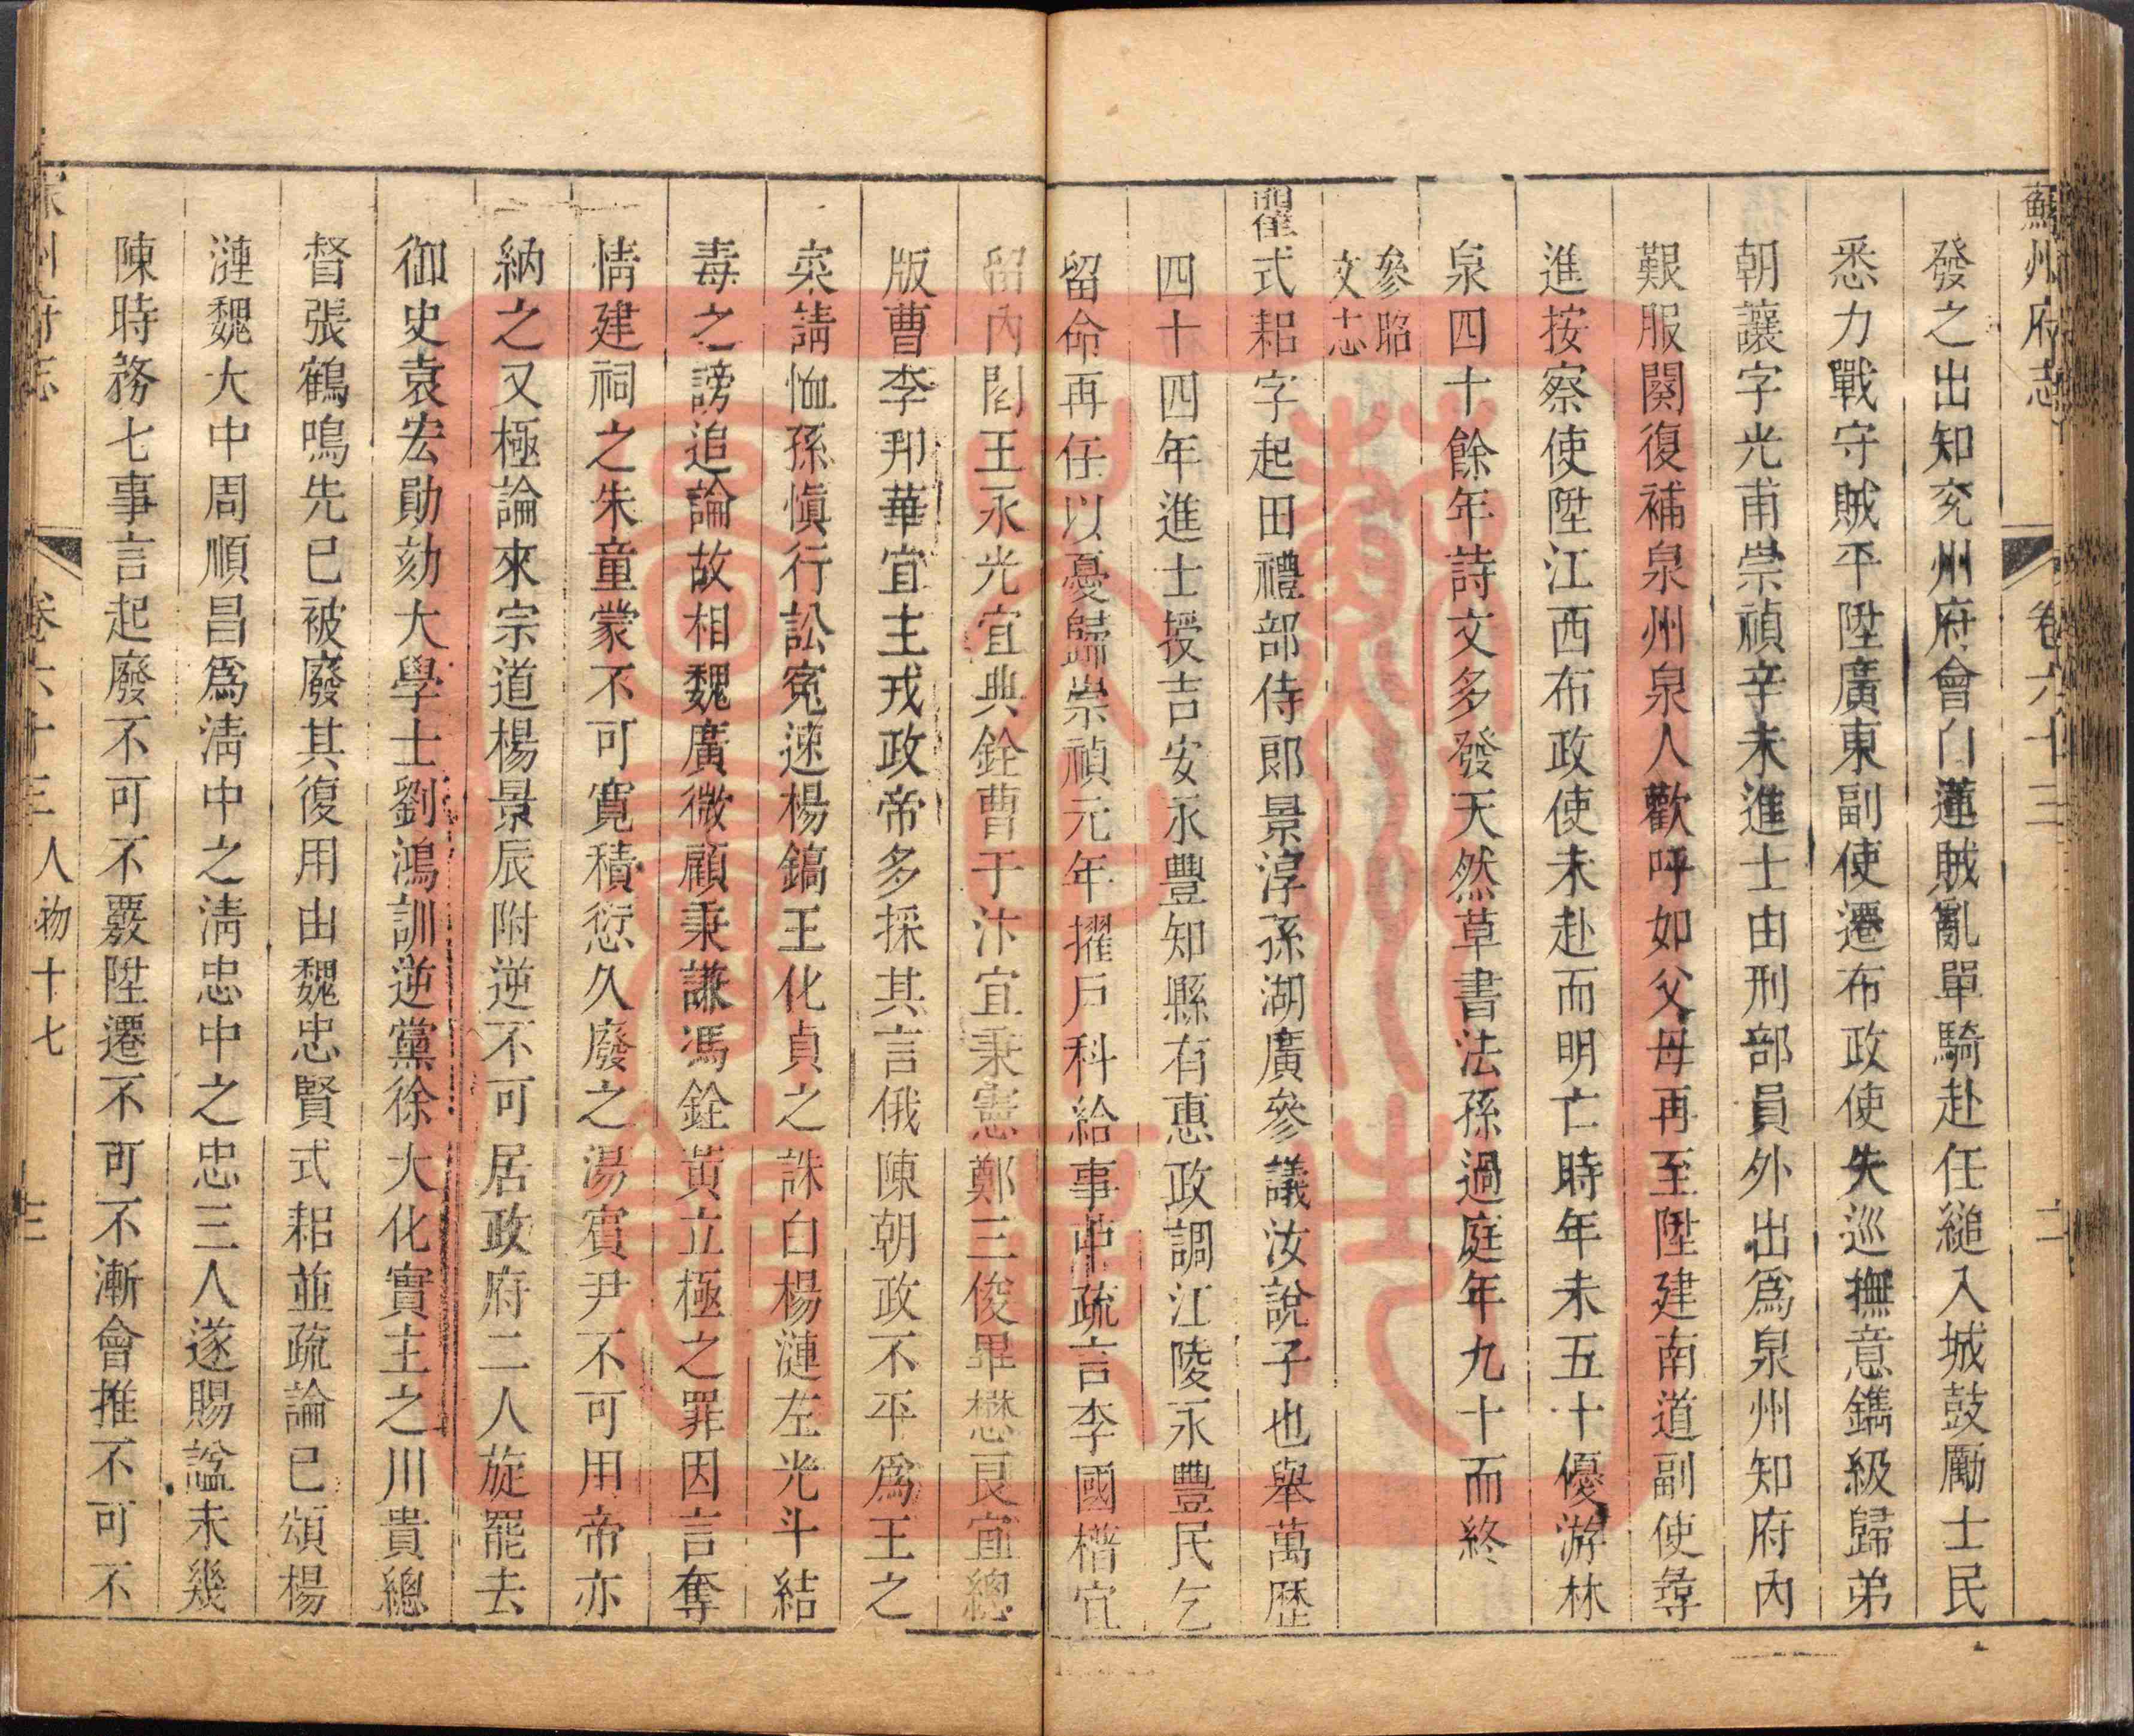 蘇州府志 卷六十三 二
發之出知兖州府會白蓮賊亂單騎赴任縋入城鼓勵士民
悉力戰守賊平陞廣東副使遷布政使失巡撫意鐫級歸弟
朝讓字光甫崇禎辛未進士由刑部員外出爲泉州知府內
艱服闋復補泉州泉人歡呼如父母再至陞建南道副使尋
進按察使陞江西布政使未赴而明亡時年未五十優游林
泉四十餘年詩文多發天然草書法孫過庭年九十而終
參昭
文志
瞿式耜字起田禮部侍郎景淳孫湖廣參議汝說子也舉萬歷
四十四年進士授吉安永豐知縣有惠政調江陵永豐民乞
留命再任以憂歸崇禎元年擢戶科給事中疏言李國𣚴宜
留內閣王永光宜典銓曹于汴宜秉憲鄭三俊畢懋良宜總
版曹李邦華宜主戎政帝多採其言俄陳朝政不平爲王之
寀請恤孫愼行訟寃速楊鎬王化貞之誅白楊漣左光斗結
毒之謗追論故相魏廣微顧秉謙馮銓黃立極之罪因言奪
情建祠之朱童蒙不可寬積愆久廢之湯賓尹不可用帝亦
納之又極論來宗道楊景辰附逆不可居政府二人旋罷去
御史袁宏勛劾大學士劉鴻訓逆黨徐大化實主之川貴總
督張鶴鳴先已被廢其復用由魏忠賢式耜並疏論已頌楊
漣魏大中周順昌爲淸中之淸忠中之忠三人遂賜諡未幾
陳時務七事言起廢不可不覈陞遷不可不漸會推不可不
蘇州府志 卷六十三 人物十七 三